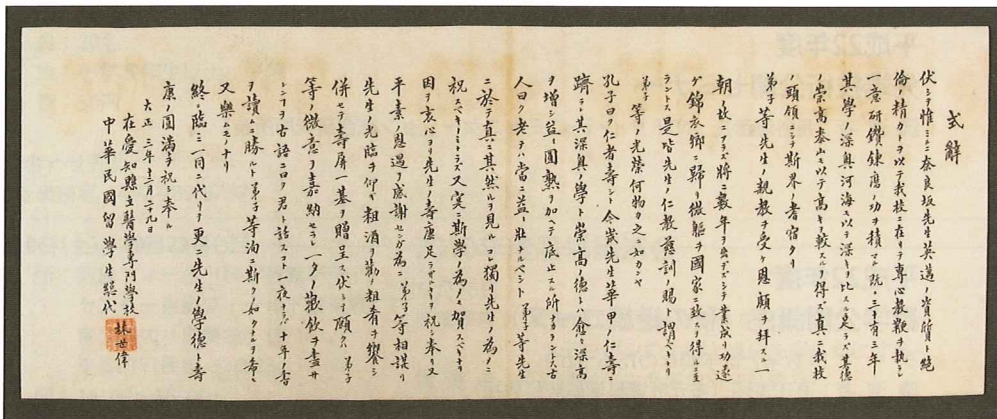 式辭
伏シテ惟ミルニ奈良坂先生英邁ノ資質ト絶
倫ノ精力トヲ以テ我校ニ在リテ專心教鞭ヲ執ラレ
一意研鑽錬磨ノ功ヲ積マレ既ニ三十有三年
其學ノ深奥河海モ以テ深キヲ比スルニ足ラズ其德
ノ崇高泰山モ以テ高キヲ較スルヲ得ズ真ニ我校
ノ頭領ニシテ斯界ノ耆宿タリ
弟子等先生ノ親教ヲ受ケ恩顧ヲ拜スル一
朝ノ故ニアラズ將ニ數年ヲ出デズシテ業成リ功遂
ゲ錦衣鄕ニ歸リ微軀ヲ國家ニ致スヲ得ルニ至
ラントス是皆先生ノ仁教慈訓ノ賜ト謂フベキナリ
弟子等ノ光榮何物カ之ニ如カンヤ
孔子曰ク仁者壽シト今歳先生華甲ノ仁壽ニ
躋ラレ其深奥ノ學ト崇高ノ德トハ愈々深高
ヲ增シ益々圓熟ヲ加ヘテ底止スル所ナカラントス古
人曰ク老テハ當ニ益々壯ナルベシト弟子等先生
ニ於テ真ニ其然ルヲ見ル之レ獨リ先生ノ為ニ
祝スベキノミナラズ又實ニ斯學ノ為ノ賀スベキナリ
因テ亥心ヨリ先生ノ壽康足ラザルナキヲ祝シ奉リ又
平素ノ恩遇ヲ感謝センガ為ニ弟子等相謀リ
先生ノ光臨ヲ仰ギ粗酒ヲ勧メ粗肴ヲ饗シ
併セテ壽屏一基ヲ贈呈ス伏シテ願クハ弟子
等ノ微意ヲ嘉納セラレ一夕ノ歡飲ヲ盡サ
レンヿヲ古語ニ曰ク君ト話スコト一夜ナラバ十年ノ書
ヲ讀ムニ勝ルト弟子等洵ニ斯クノ如クナルヲ希ヒ
又樂ムモノナリ
終ニ臨ミ一同ニ代リテ更ニ先生ノ學德ト壽
康ノ圓満ヲ祝シ奉ル
大正三年十二月二十九日
在愛知縣立醫學專門學校
中華民國留學生總代
林世偉